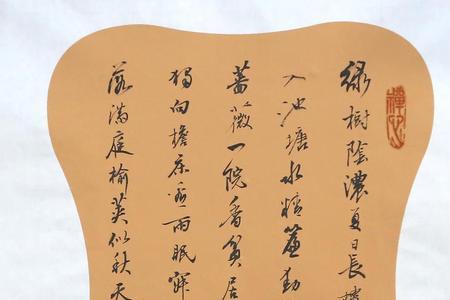 禪心
綠樹陰濃夏日長樓
入池塘水精簾動
薔薇一院香貧居
獨向檐床看雨眠寂
滿庭榆莢似秋天